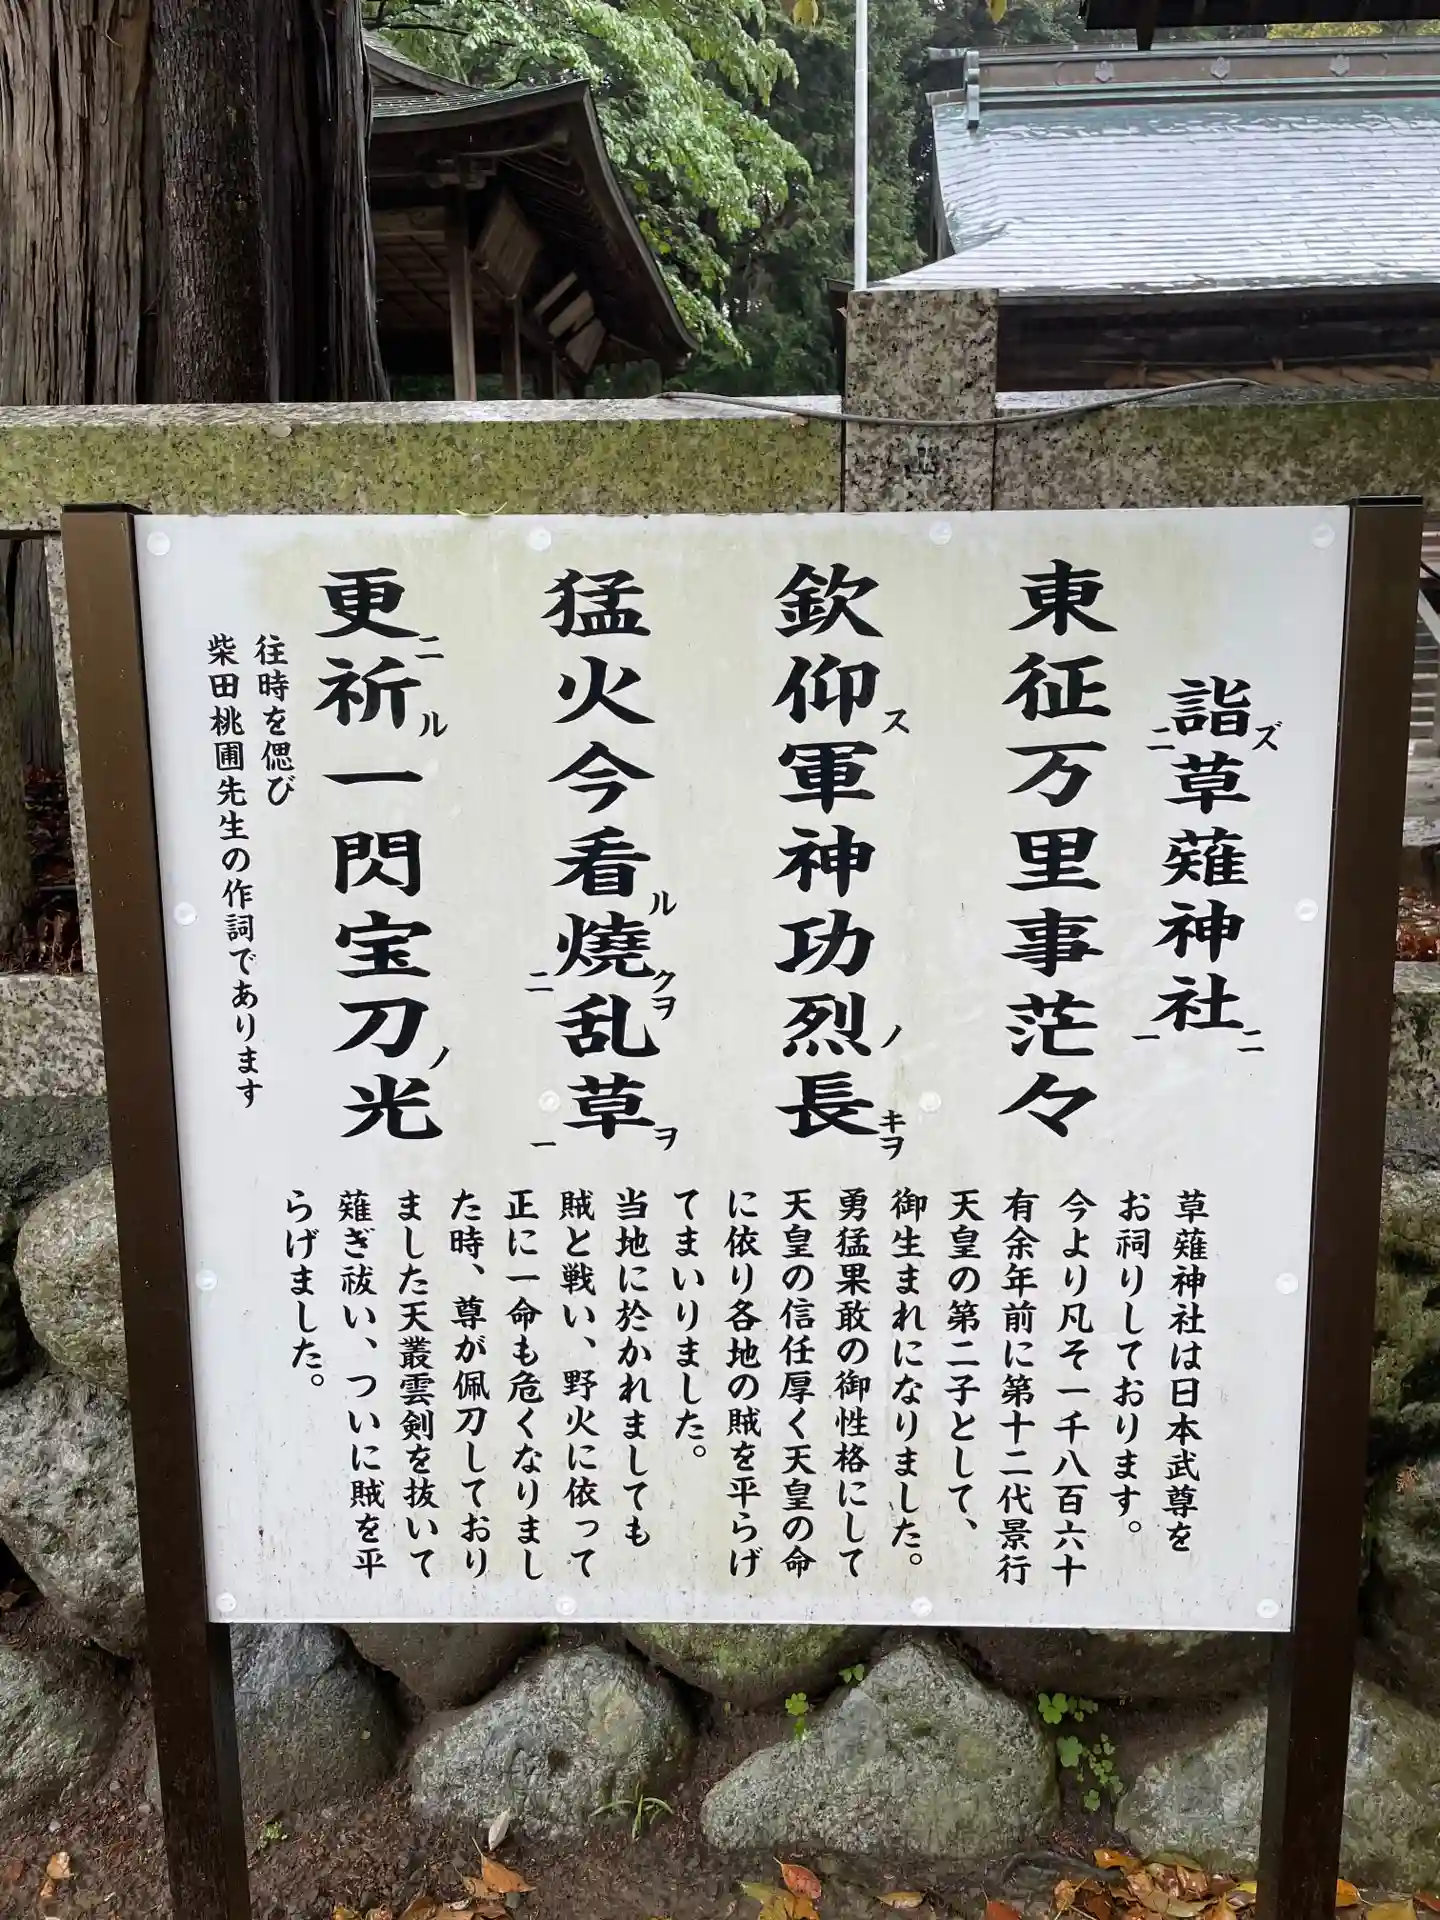 詣ズ二草薙神社ニ一
東征万里事茫々
欽仰ス軍神功烈ノ長キヲ
猛火今看ル燒クヲ二乱草ヲ一
更ニ祈ル一閃宝刀ノ光
往時を偲び
柴田桃圃先生の作詞であります
草薙神社は日本武尊を
お祠りしております。
今より凡そ一千八百六十
有余年前に第十二代景行
天皇の第二子として、
御生まれになりました。
勇猛果敢の御性格にして
天皇の信任厚く天皇の命
に依り各地の賊を平らげ
てまいりました。
当地に於かれましても
賊と戦い、野火に依って
正に一命も危くなりまし
た時、尊が佩刀しており
ました天叢雲剣を抜いて
薙ぎ祓い、ついに賊を平
らげました。